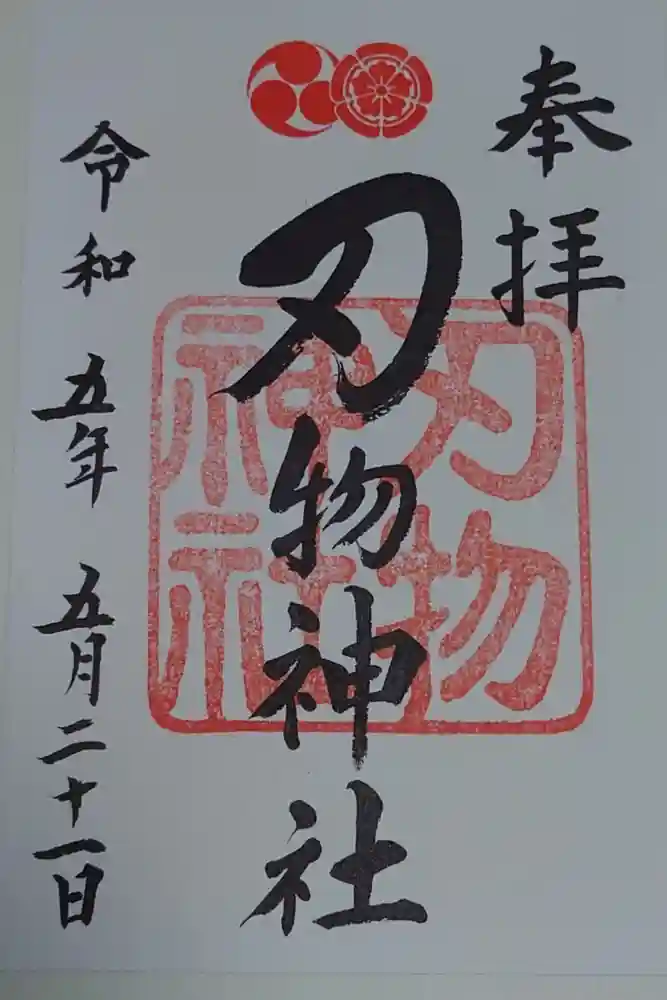 奉拝
刃物神社
令和五年五月二十一日
刃物
神社